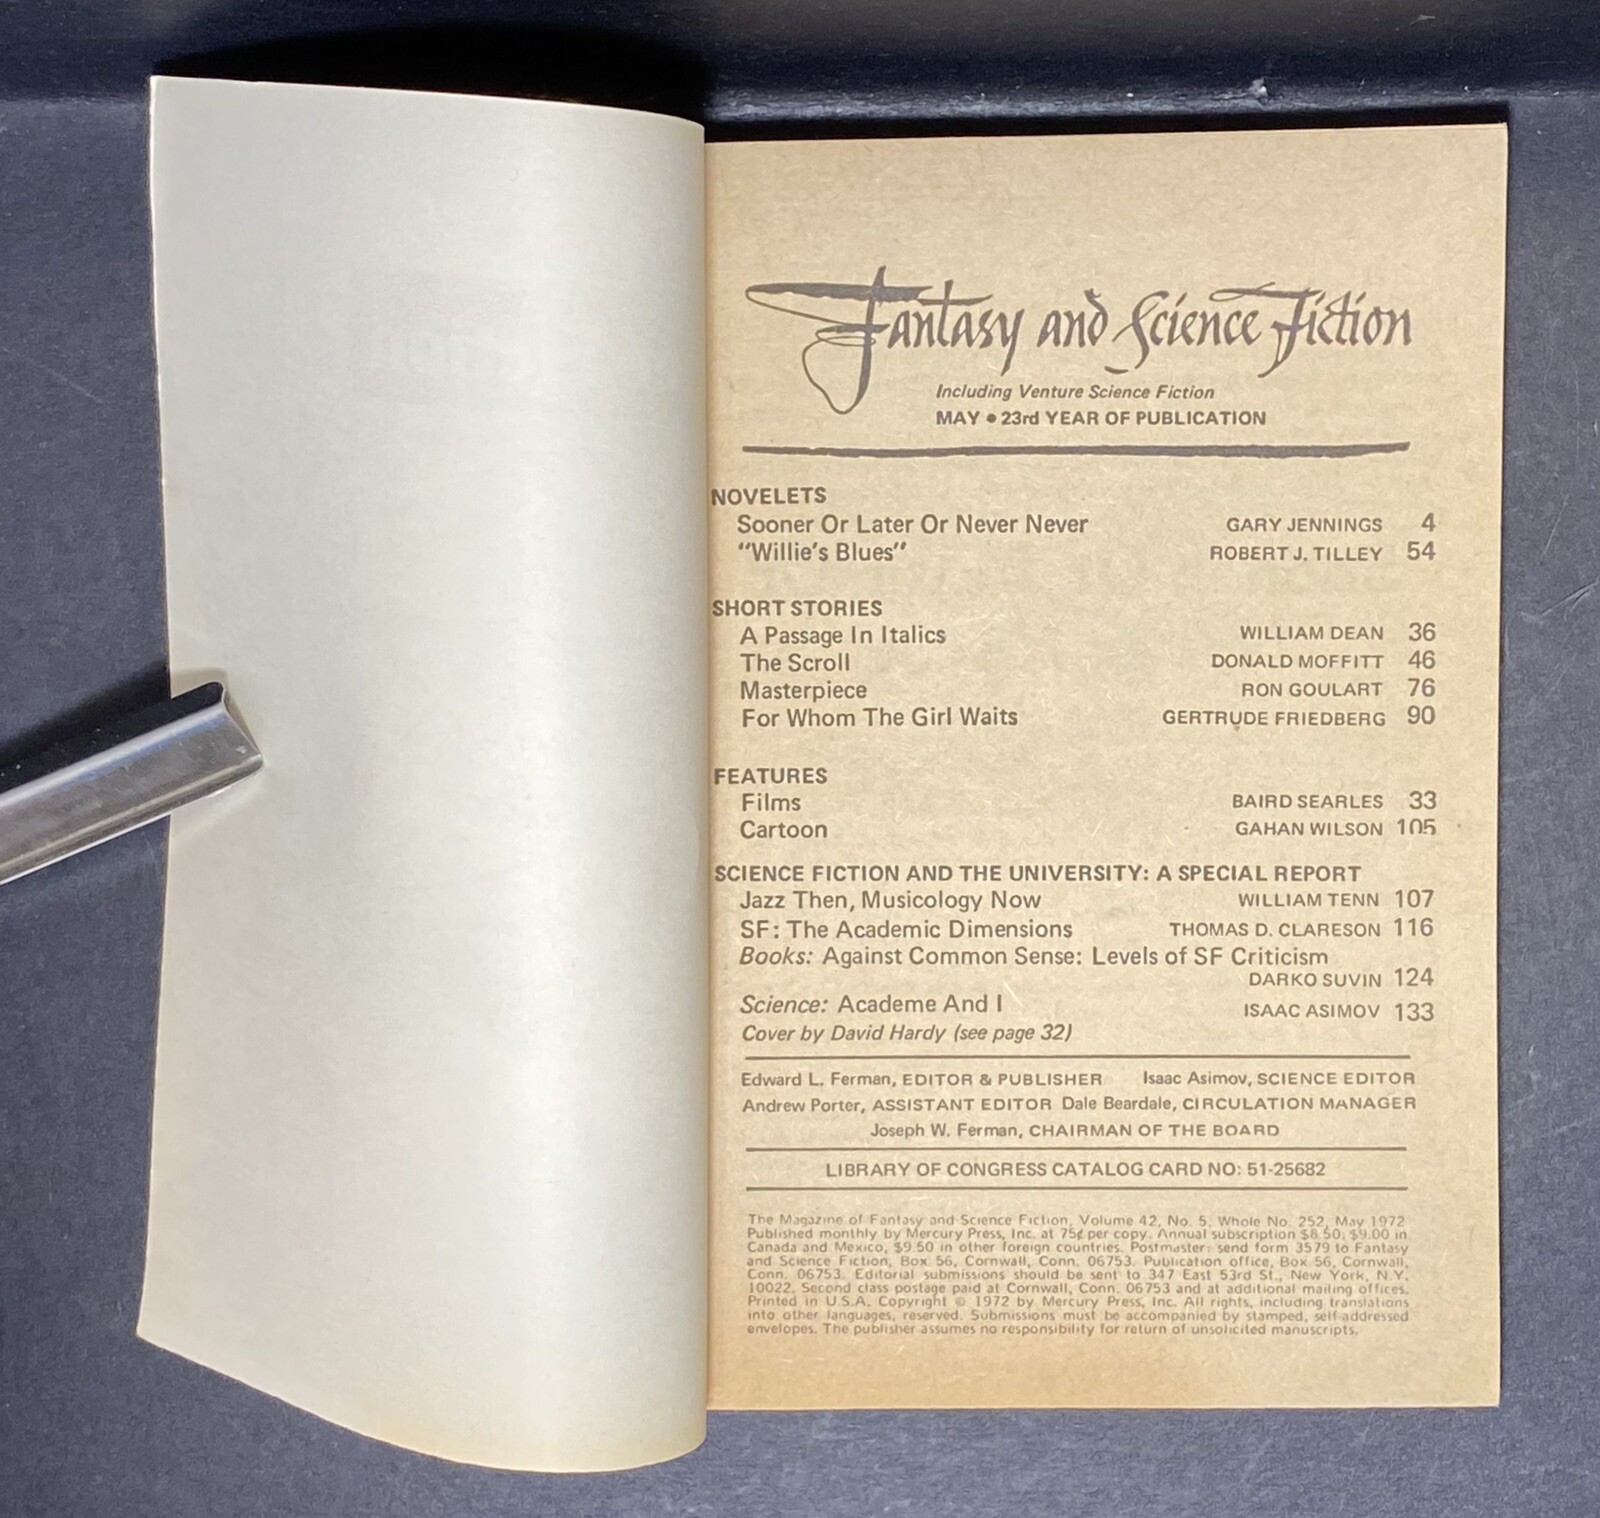 Fantasy and Science Fiction
Including Venture Science Fiction
MAY • 23rd YEAR OF PUBLICATION
NOVELETS
Sooner Or Later Or Never Never GARY JENNINGS 4
"Willie's Blues" ROBERT J. TILLEY 54
SHORT STORIES
A Passage In Italics WILLIAM DEAN 36
The Scroll DONALD MOFFITT 46
Masterpiece RON GOULART 76
For Whom The Girl Waits GERTRUDE FRIEDBERG 90
FEATURES
Films BAIRD SEARLES 33
Cartoon GAHAN WILSON 105
SCIENCE FICTION AND THE UNIVERSITY: A SPECIAL REPORT
Jazz Then, Musicology Now WILLIAM TENN 107
SF: The Academic Dimensions THOMAS D. CLARESON 116
Books: Against Common Sense: Levels of SF Criticism
DARKO SUVIN 124
Science: Academe And I ISAAC ASIMOV 133
Cover by David Hardy (see page 32)
Edward L. Ferman, EDITOR & PUBLISHER Isaac Asimov, SCIENCE EDITOR
Andrew Porter, ASSISTANT EDITOR Dale Beardale, CIRCULATION MANAGER
Joseph W. Ferman, CHAIRMAN OF THE BOARD
LIBRARY OF CONGRESS CATALOG CARD NO: 51-25682
The Magazine of Fantasy and Science Fiction, Volume 42, No. 5, Whole No. 252, May 1972
Published monthly by Mercury Press, Inc. at 75¢ per copy. Annual subscription $8.50; $9.00 in
Canada and Mexico, $9.50 in other foreign countries. Postmaster: send form 3579 to Fantasy
and Science Fiction, Box 56, Cornwall, Conn. 06753. Publication office, Box 56, Cornwall,
Conn. 06753. Editorial submissions should be sent to 347 East 53rd St., New York, N.Y.
10022. Second class postage paid at Cornwall, Conn. 06753 and at additional mailing offices.
Printed in U.S.A. Copyright © 1972 by Mercury Press, Inc. All rights, including translations
into other languages, reserved. Submissions must be accompanied by stamped, self-addressed
envelopes. The publisher assumes no responsibility for return of unsolicited manuscripts.